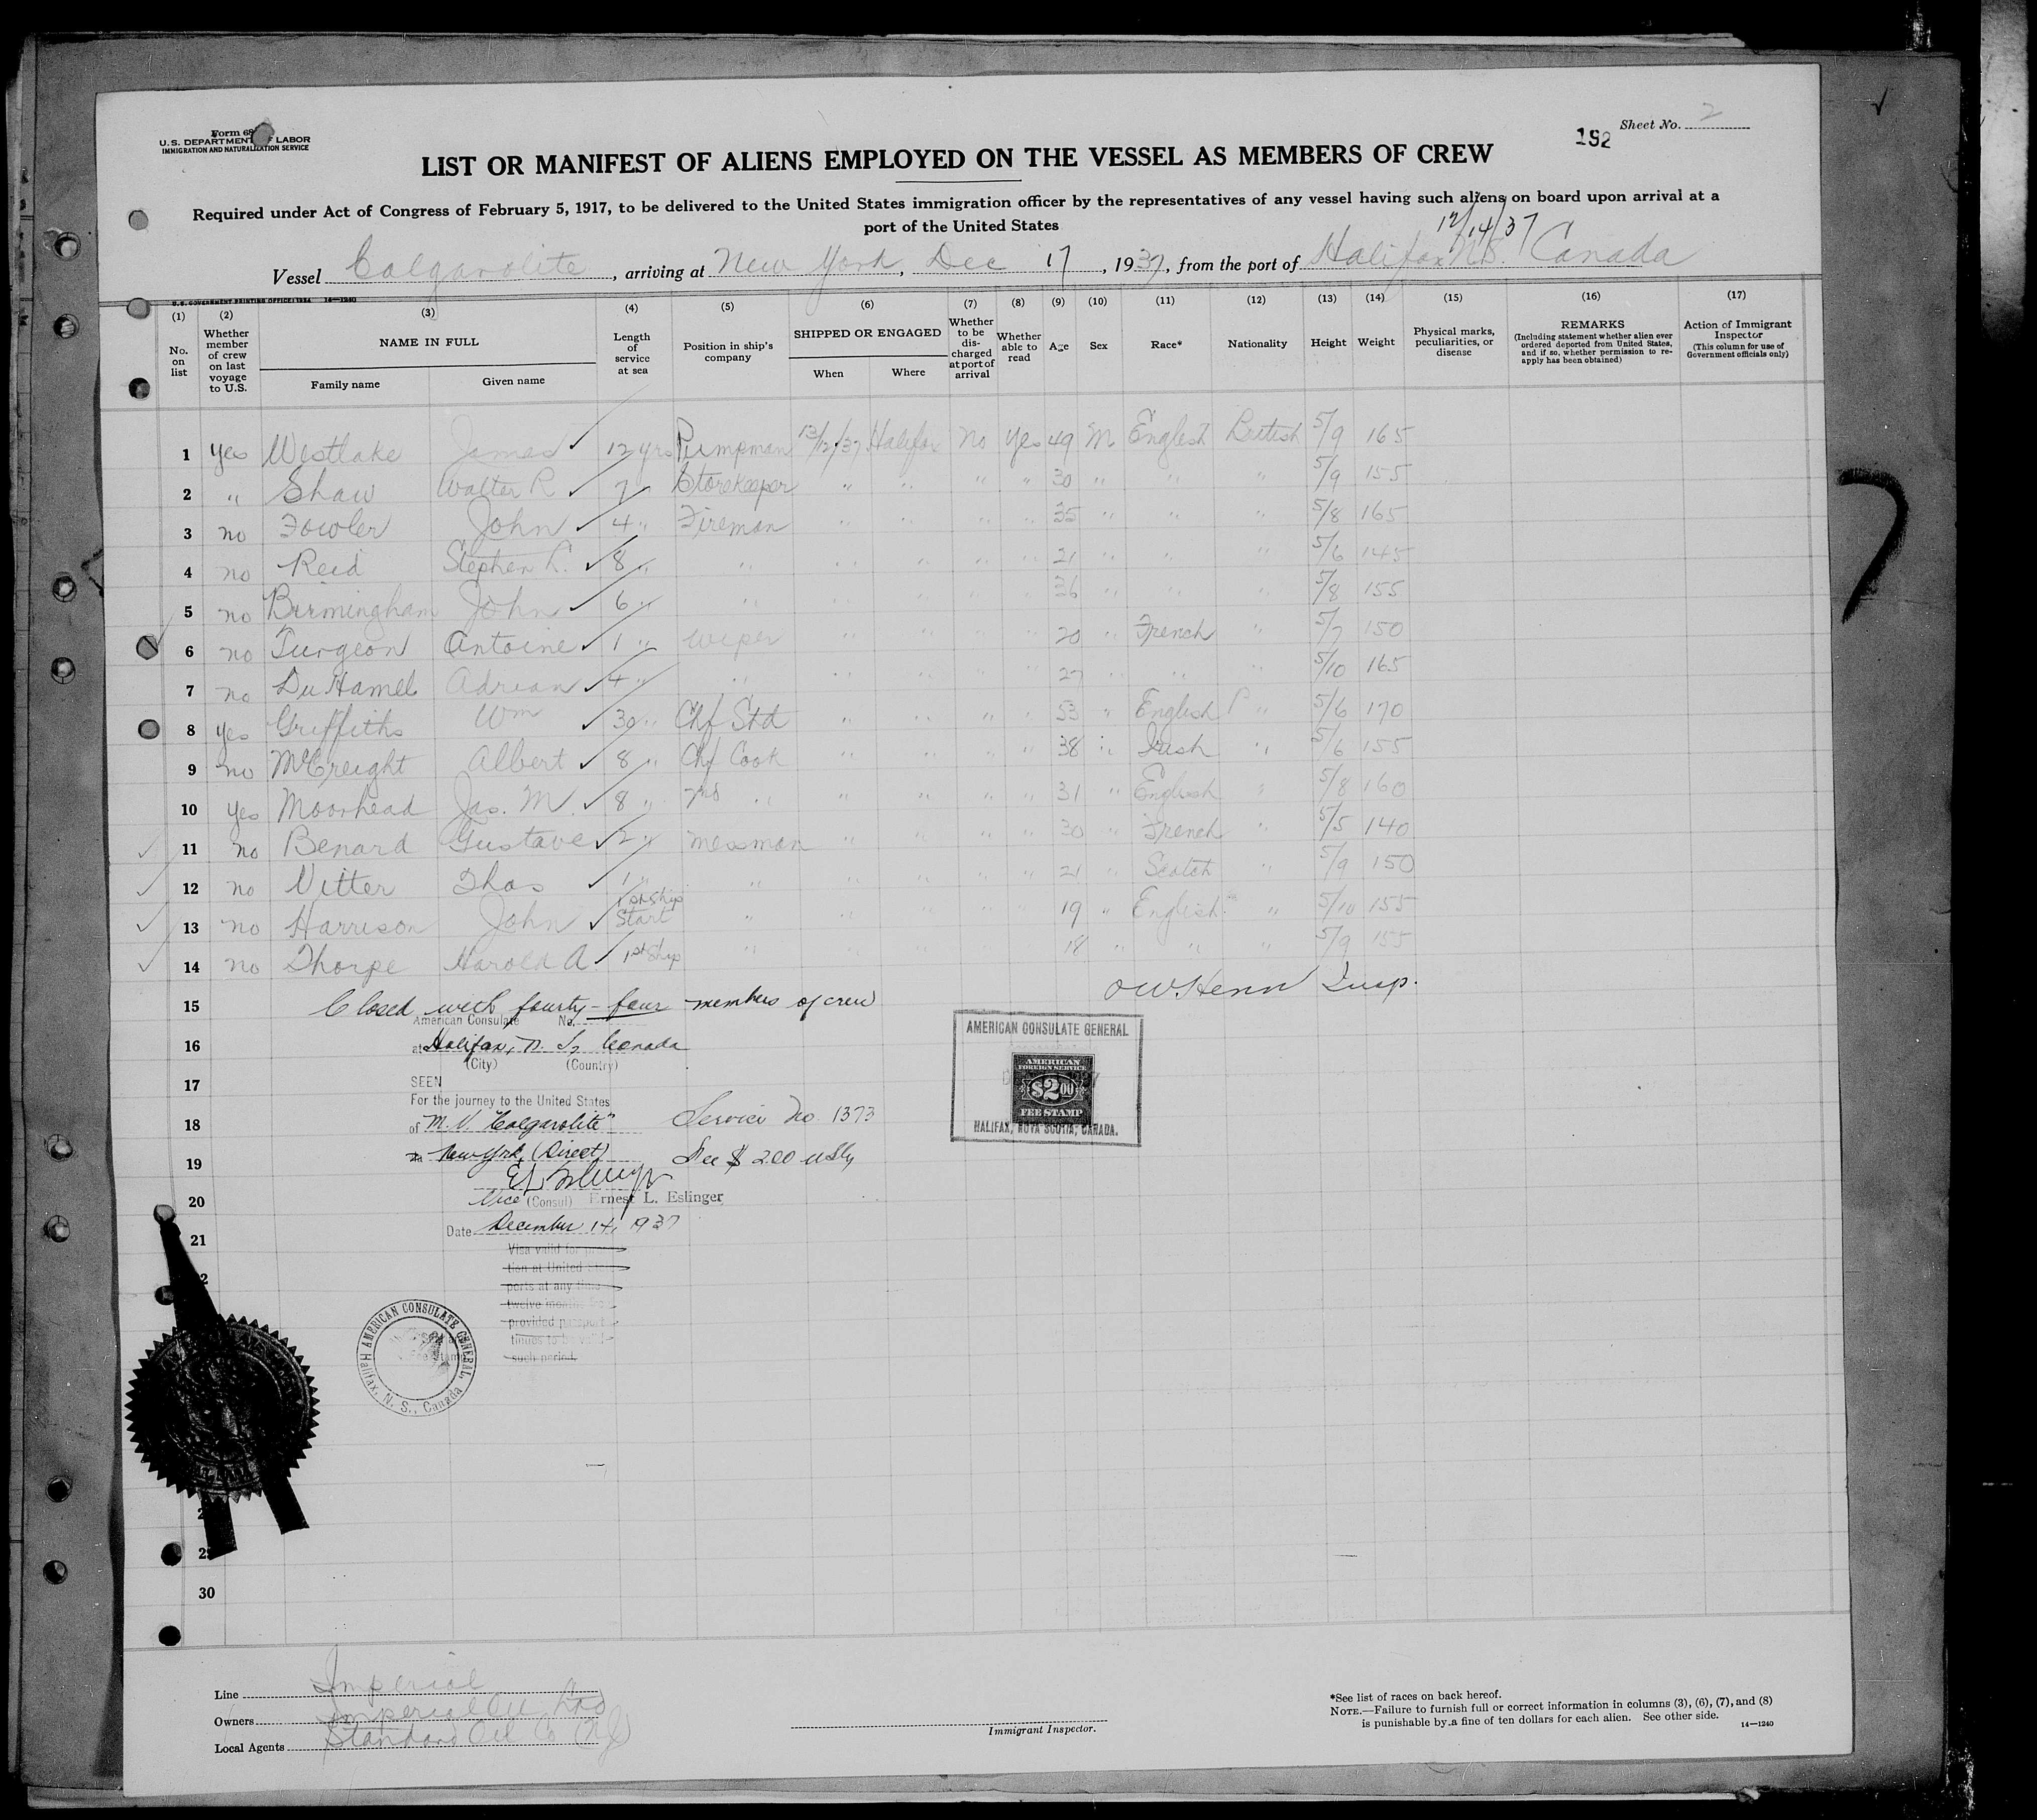 Form 68
U.S. DEPARTMENT OF LABOR
IMMIGRATION AND NATURALIZATION SERVICE
Sheet No. 2
192
LIST OR MANIFEST OF ALIENS EMPLOYED ON THE VESSEL AS MEMBERS OF CREW
Required under Act of Congress of February 5, 1917, to be delivered to the United States immigration officer by the representatives of any vessel having such aliens on board upon arrival at a
port of the United States
12/14/37
Vessel Calgarolite, arriving at New York, Dec 17, 1937, from the port of Halifax N.S. Canada
U.S. GOVERNMENT PRINTING OFFICE: 1934 14—1240
(1) (2) (3) (4) (5) (6) (7) (8) (9) (10) (11) (12) (13) (14) (15) (16) (17)
No. on list
Whether member of crew on last voyage to U.S.
NAME IN FULL
Family name
Given name
Length of service at sea
Position in ship's company
SHIPPED OR ENGAGED
When
Where
Whether to be discharged at port of arrival
Whether able to read
Age
Sex
Race*
Nationality
Height
Weight
Physical marks, peculiarities, or disease
REMARKS
(Including statement whether alien ever ordered deported from United States, and if so, whether permission to reapply has been obtained)
Action of Immigrant Inspector
(This column for use of Government officials only)
1 yes Westlake James 12 yrs Pumpman 13/12/37 Halifax No Yes 49 M English British 5/9 165
2 " Shaw Walter R 7 " Storekeeper " " " " 30 " " " 5/9 155
3 no Fowler John 4 " Fireman " " " " 35 " " " 5/8 165
4 no Reid Stephen R. 8 " " " " " " 21 " " " 5/6 145
5 no Birmingham John 6 " " " " " " 26 " " " 5/8 155
6 no Turgeon Antoine 1 " Wiper " " " " 20 " French " 5/7 150
7 no DuHamel Adrian 4 " " " " " " 27 " " " 5/10 165
8 yes Griffiths Wm 30 " Chf Std " " " " 53 " English " 5/6 170
9 no McCreight Albert 8 " Chf Cook " " " " 38 " Irish " 5/6 155
10 yes Moorhead Jas. M. 8 " 2nd " " " " " 31 " English " 5/8 160
11 no Benard Gustave 2 " messman " " " " 30 " French " 5/5 140
12 no Vitter Thos 1 " " " " " " 21 " Scotch " 5/9 150
13 no Harrison John 1st Ship Start " " " " " 19 " English " 5/10 155
14 no Thorpe Harold A. 1st Ship " " " " " 18 " " " 5/9 155
O.W. Henn Insp.
15 Closed with fourty-four members of crew
American Consulate No.
16 at Halifax, N. S., Canada
(City) (Country)
17 SEEN
For the journey to the United States
18 of M.V. "Calgarolite" Service No. 1373
19 New York, (Direct) Fee $ 2.00
20 Vice (Consul) Ernest L. Eslinger
21 Date December 14, 1937
Visa valid for
tion at United
ports at any time
twelve months
provided passport
tinues to be valid
such period.
AMERICAN CONSULATE GENERAL
AMERICAN
FOREIGN SERVICE
$2.00
FEE STAMP
HALIFAX, NOVA SCOTIA, CANADA.
AMERICAN CONSULATE GENERAL,
Halifax, N. S., Canada
30
Line Imperial
Owners Imperial Oil Ltd
Local Agents Standard Oil Co (NJ)
Immigrant Inspector.
*See list of races on back hereof.
NOTE.—Failure to furnish full or correct information in columns (3), (6), (7), and (8)
is punishable by a fine of ten dollars for each alien. See other side.
14—1240